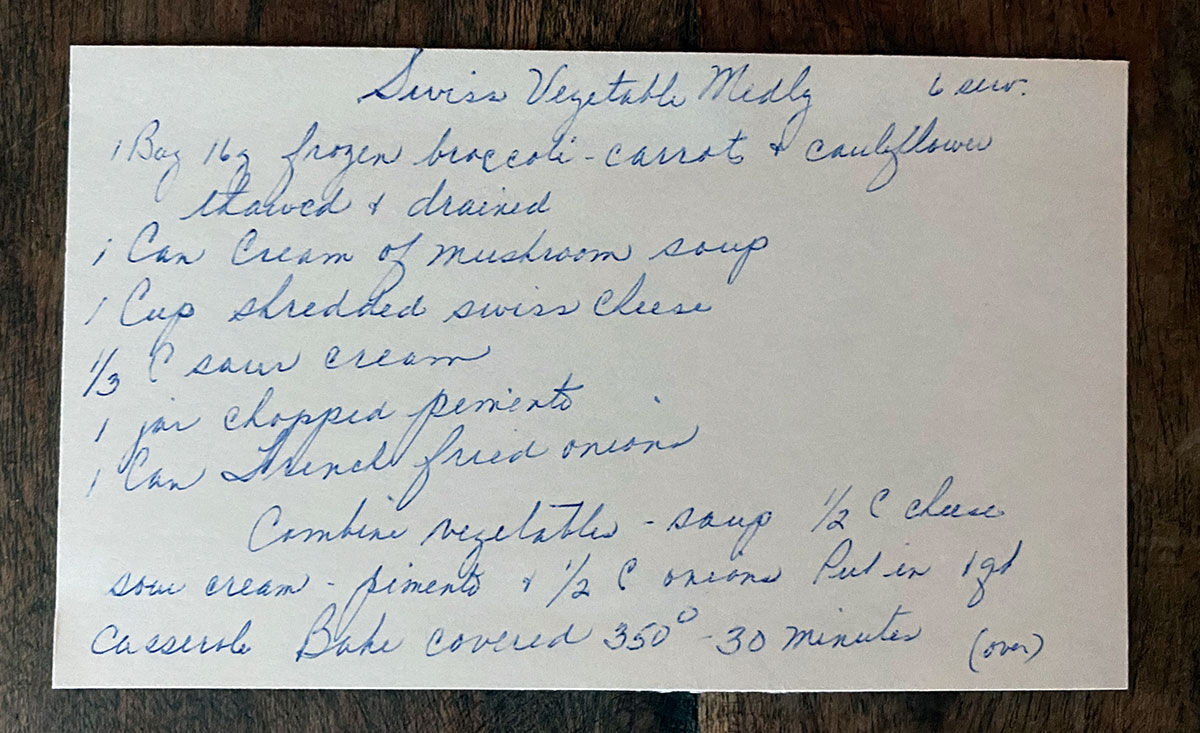 Swiss Vegetable Medly 6 serv.
1 Bag 16 oz frozen broccoli - carrots & cauliflower
thawed & drained
1 Can Cream of mushroom soup
1 Cup shredded swiss cheese
1/3 C sour cream
1 jar chopped pimento
1 Can French fried onions
Combine vegetables - soup 1/2 C cheese
sour cream - pimento & 1/2 C onions Put in 1 qt
Casserole Bake covered 350° - 30 minutes (over)